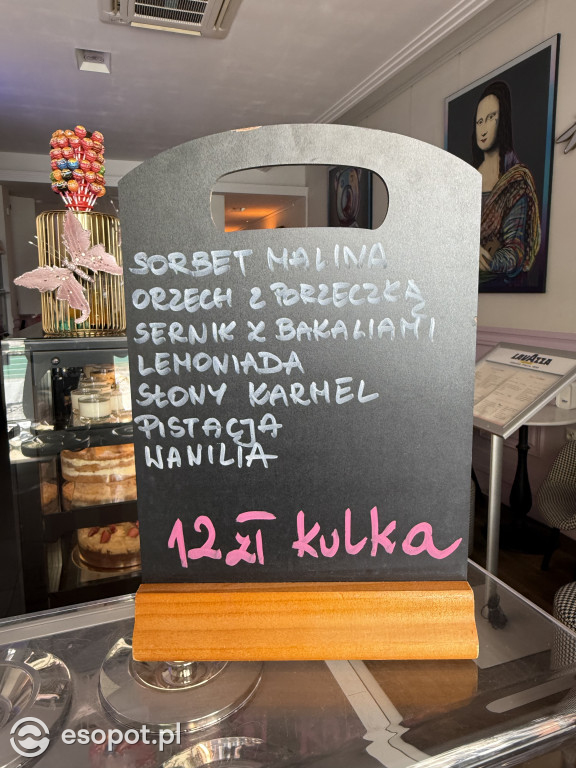 SORBET MALINA
ORZECH Z PORZECZKĄ
SERNIK Z BAKALIAMI
LEMONIADA
SŁONY KARMEL
PISTACJA
WANILIA
12 zł kulka
LAVAZZA
esopot.pl